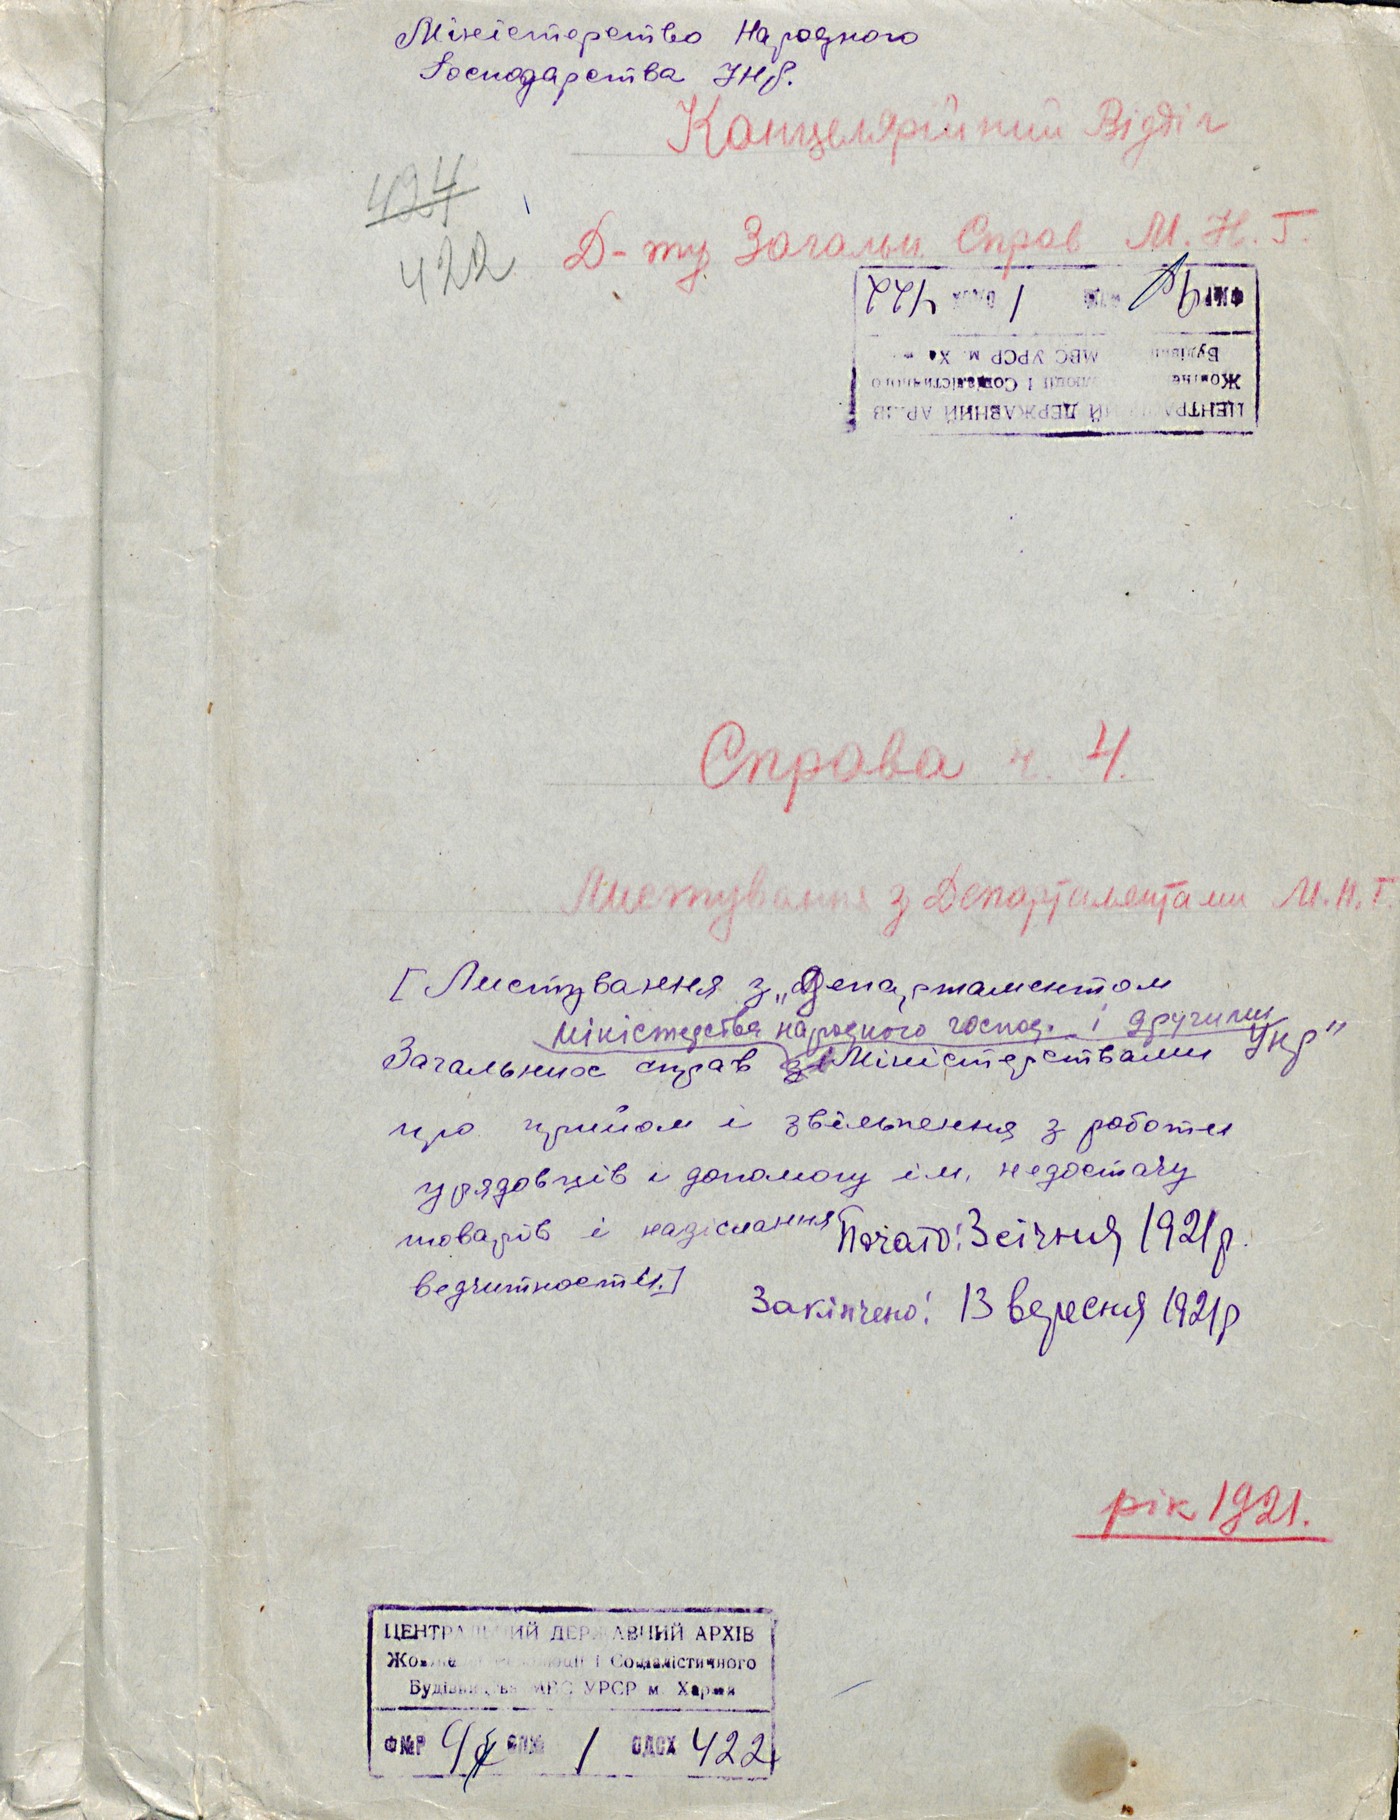 Міністерство Народного
Господарства УНР.
Канцелярійний Відділ
424
422
Д-ту Загальн Справ М.Н.Г.
ФМР 1 422
Будівни МВС УРСР м. Ха
Жовтне люції і Соціалістичного
ЦЕНТРАЛЬНИЙ ДЕРЖАВНИЙ АРХІВ
Справа ч. 4.
Листування з Департаментами М.Н.Г.
[Листування з „Департаментом
Міністерства народного господ. і другими
Загальних справ Міністерствами УНР"
про прийом і звільнення з роботи
урядовців і допомогу їм, недостачу
товарів і надіслання
Почато: 3 січня 1921 р.
відчитности.]
Закінчено: 13 вересня 1921 р
рік 1921.
ЦЕНТРАЛЬНИЙ ДЕРЖАВНИЙ АРХІВ
Жовтневої Революції і Соціалістичного
Будівництва МВС УРСР м. Харків
ФМР 1 ОДСХ 422